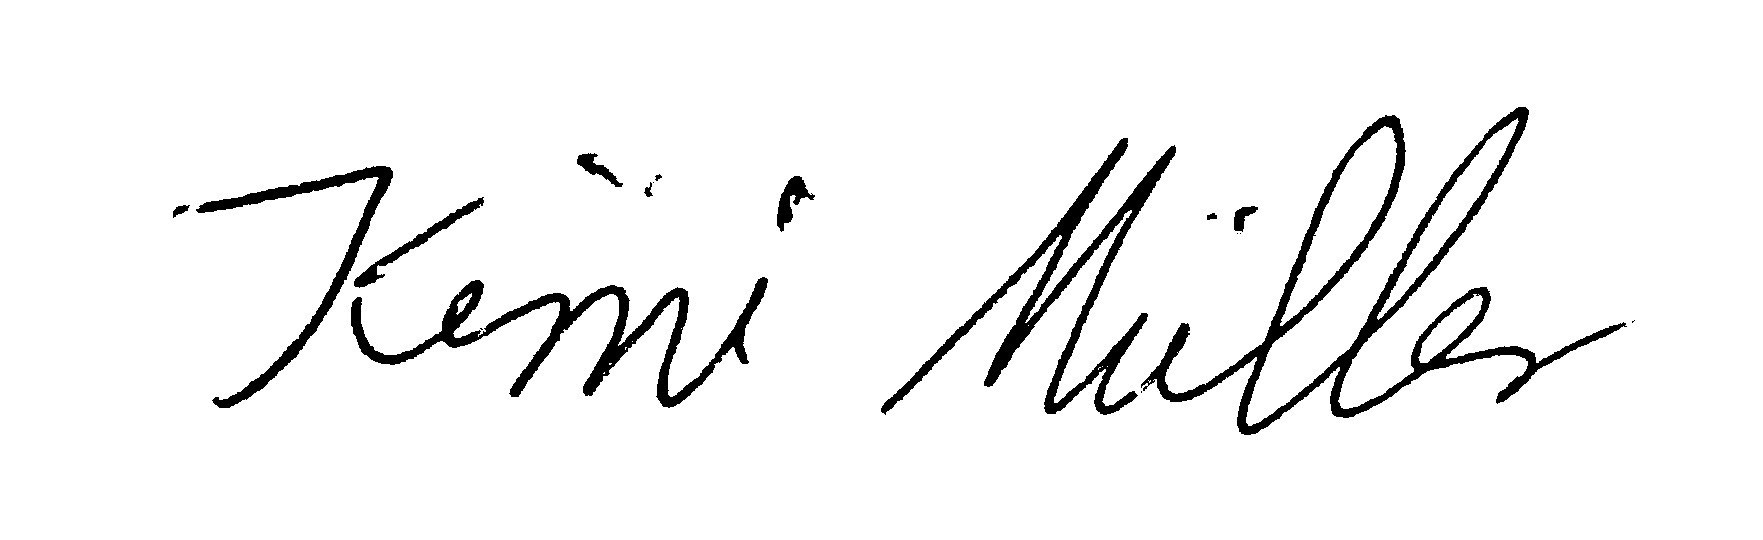 Kemi Müller